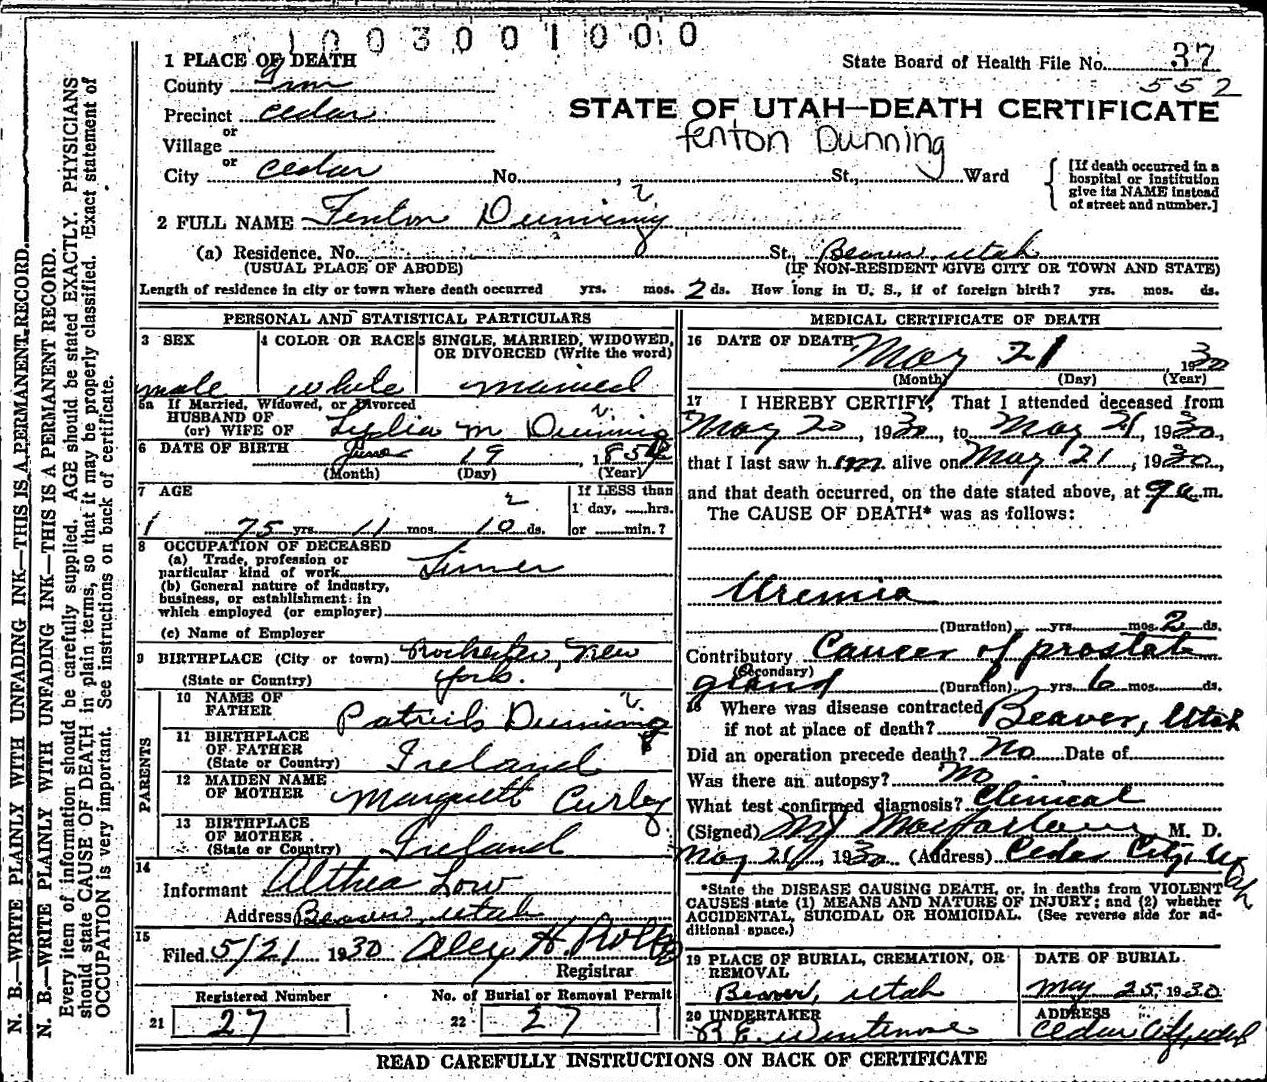 1003001000
1 PLACE OF DEATH
State Board of Health File No. 37
552
County Iron
STATE OF UTAH—DEATH CERTIFICATE
Precinct Cedar
Fenton Dunning
or
Village
or
City Cedar No. , St., Ward
[If death occurred in a hospital or institution give its NAME instead of street and number.]
2 FULL NAME Fenton Dunning
(a) Residence. No. St. Beaver Utah
(USUAL PLACE OF ABODE) (IF NON-RESIDENT GIVE CITY OR TOWN AND STATE)
Length of residence in city or town where death occurred yrs. mos. 2 ds. How long in U. S., if of foreign birth? yrs. mos. ds.
PERSONAL AND STATISTICAL PARTICULARS
3 SEX
4 COLOR OR RACE
5 SINGLE, MARRIED, WIDOWED, OR DIVORCED (Write the word)
male white married
5a If Married, Widowed, or Divorced
HUSBAND OF
(or) WIFE OF Lydia M Dunning
6 DATE OF BIRTH June 19, 1854
(Month) (Day) (Year)
7 AGE
If LESS than
1 day, ....hrs.
75 yrs. 11 mos. 10 ds. or ....min.?
2
8 OCCUPATION OF DECEASED
(a) Trade, profession or
particular kind of work
(b) General nature of industry,
business, or establishment in
which employed (or employer)
(c) Name of Employer
9 BIRTHPLACE (City or town) Rochester, New
(State or Country) York.
PARENTS
10 NAME OF
FATHER Patrick Dunning
11 BIRTHPLACE
OF FATHER
(State or Country) Ireland
12 MAIDEN NAME
OF MOTHER Margrett Curley
13 BIRTHPLACE
OF MOTHER
(State or Country) Ireland
14
Informant Althea Low
Address Beaver, Utah
15
Filed 5/21 1930 Alex H. Rollo
Registrar
Registered Number No. of Burial or Removal Permit
21 27 22 27
MEDICAL CERTIFICATE OF DEATH
16 DATE OF DEATH May 21 1930
(Month) (Day) (Year)
17 I HEREBY CERTIFY, That I attended deceased from
May 20, 1930, to May 21, 1930,
that I last saw h im alive on May 21, 1930,
and that death occurred, on the date stated above, at 9 a.m.
The CAUSE OF DEATH* was as follows:
Uremia
(Duration) yrs. mos. 2 ds.
Contributory Cancer of prostate
(Secondary)
gland (Duration) yrs. 6 mos. ds.
18 Where was disease contracted
if not at place of death? Beaver, Utah
Did an operation precede death? No Date of
Was there an autopsy? No
What test confirmed diagnosis? Clinical
(Signed) M J Macfarlane M. D.
May 21, 1930 (Address) Cedar City, Utah
*State the DISEASE CAUSING DEATH, or, in deaths from VIOLENT
CAUSES state (1) MEANS AND NATURE OF INJURY; and (2) whether
ACCIDENTAL, SUICIDAL OR HOMICIDAL. (See reverse side for ad-
ditional space.)
19 PLACE OF BURIAL, CREMATION, OR
REMOVAL
Beaver, Utah
DATE OF BURIAL
May 25, 1930
20 UNDERTAKER
ADDRESS
Cedar City, Utah
READ CAREFULLY INSTRUCTIONS ON BACK OF CERTIFICATE
N. B.—WRITE PLAINLY WITH UNFADING INK—THIS IS A PERMANENT RECORD.
N. B.—WRITE PLAINLY WITH UNFADING INK—THIS IS A PERMANENT RECORD.
Every item of information should be carefully supplied. AGE should be stated EXACTLY. PHYSICIANS
should state CAUSE OF DEATH in plain terms, so that it may be properly classified. Exact statement of
OCCUPATION is very important. See instructions on back of certificate.